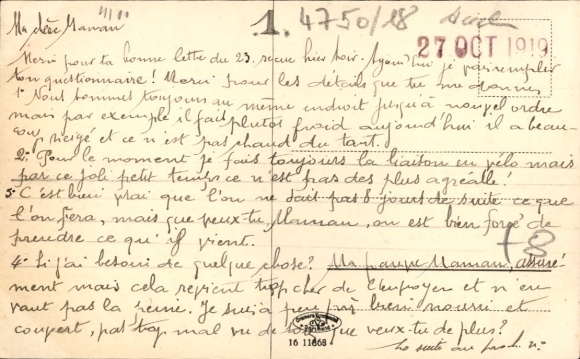 1. 4750/18
Ma chère Maman
27 OCT 1919
Merci pour ta bonne lettre du 23. reçue hier soir. Aujourd'hui je vais remplir
ton questionnaire! Merci pour les détails que tu me donnes
1º Nous sommes toujours au même endroit jusqu'à nouvel ordre
mais par exemple il fait plutôt froid aujourd'hui il a beau-
coup neigé et ce n'est pas chaud du tout.
2º Pour le moment je fais toujours la liaison en vélo mais
par ce joli petit temps ce n'est pas des plus agréable!
3º C'est bien vrai que l'on ne sait pas 8 jours de suite ce que
l'on fera, mais que veux-tu Maman, on est bien forcé de
prendre ce qu'il vient.
4º Si j'ai besoin de quelque chose? Ma pauvre Maman, assuré-
ment mais cela revient trop cher de l'envoyer et n'en
vaut pas la peine. Je suis à peu près bien nourri et
couvert, pas trop mal vu de que veux-tu de plus?
16 11868
La suite au proch. nº